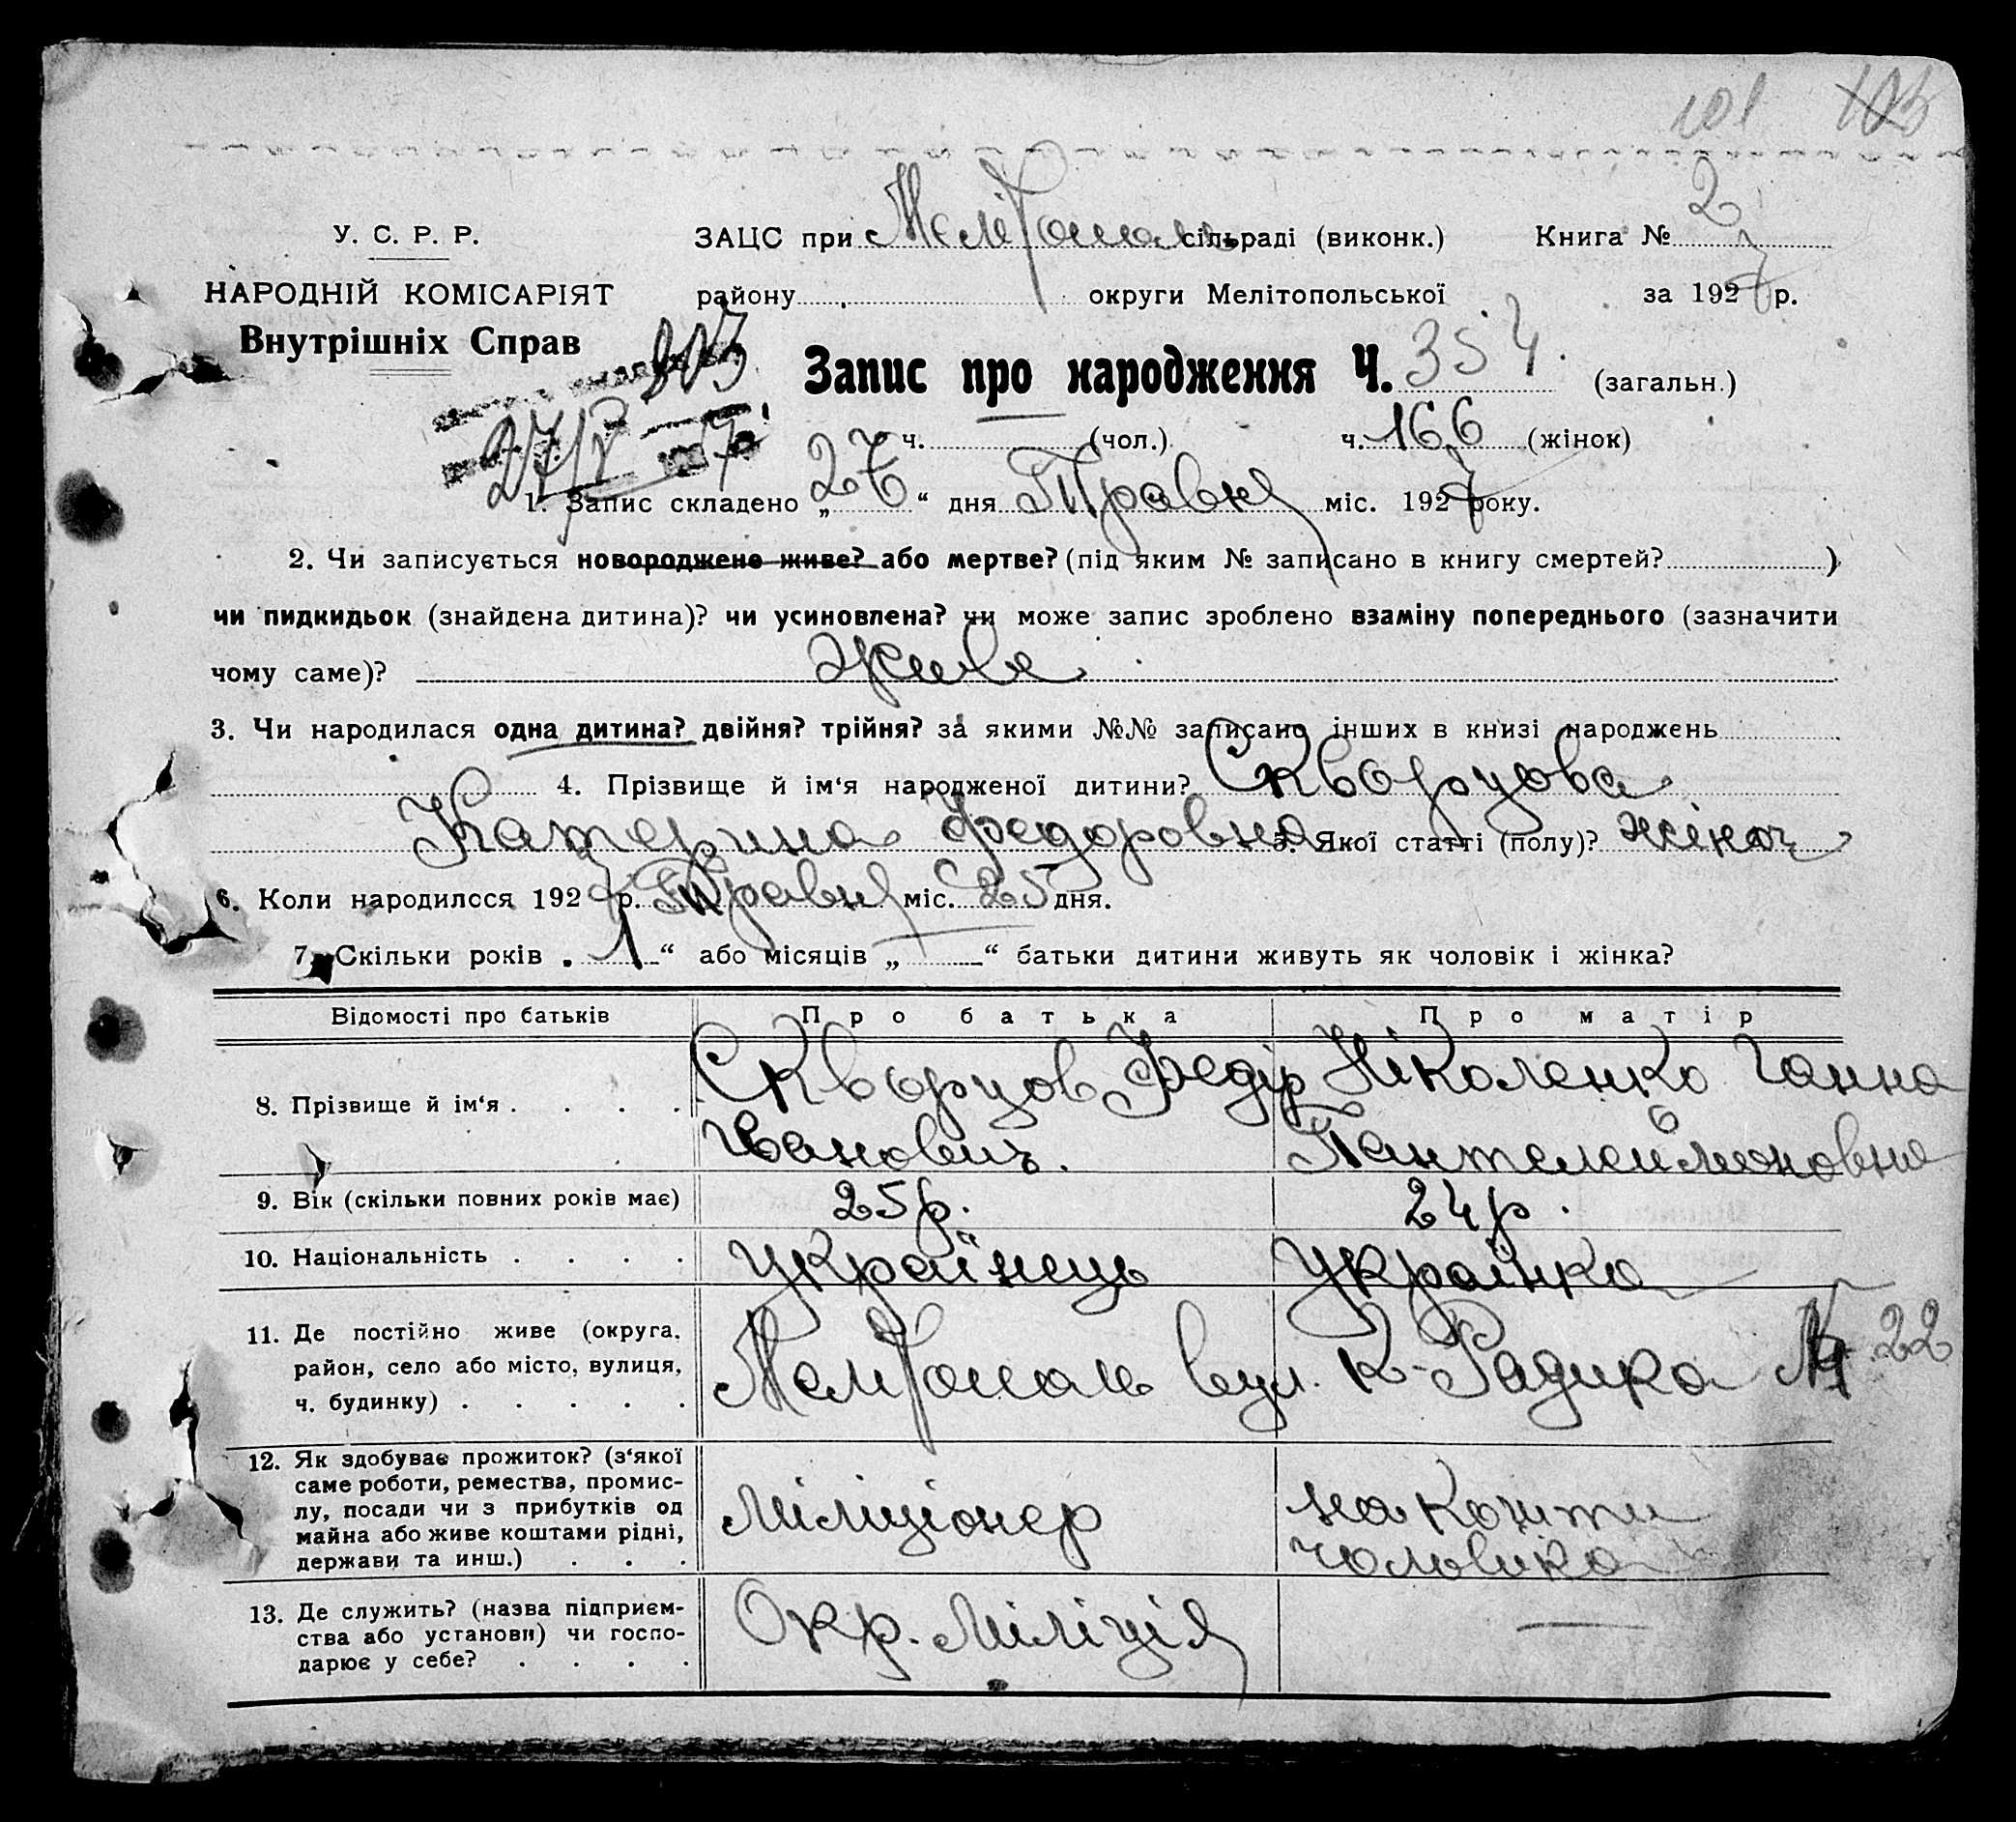 101 103
У. С. Р. Р.
ЗАЦС при Мелітополь сільраді (виконк.) Книга № 2
НАРОДНІЙ КОМІСАРІЯТ
району округи Мелітопольської за 1927 р.
Внутрішніх Справ
Запис про народження Ч. 354. (загальн.)
27/V 7
ч. (чол.) ч. 166 (жінок)
1. Запис складено „27“ дня Травня міс. 1927 року.
2. Чи записується новороджене живе? або мертве? (під яким № записано в книгу смертей? )
чи пидкидьок (знайдена дитина)? чи усиновлена? чи може запис зроблено взаміну попереднього (зазначити
чому саме)? живе
3. Чи народилася одна дитина? двійня? трійня? за якими №№ записано інших в книзі народжень
4. Прізвище й ім‘я народженої дитини? Скворцова
Катерина Федоровна 5. Якої статті (полу)? жіноч
6. Коли народилося 1927 р. Травня міс. 25 дня.
7. Скільки років „1“ або місяців „ “ батьки дитини живуть як чоловік і жінка?
Відомості про батьків Про батька Про матір
8. Прізвище й ім‘я . . . . Скворцов Федір Ніколенко Ганна
Іванович. Пантелеймоновна
9. Вік (скільки повних років має) 25 р. 24 р.
10. Національність . . . . українець українка
11. Де постійно живе (округа,
район, село або місто, вулиця,
ч. будинку) . . . . . Мелітополь вул. К-Радика № 22
12. Як здобуває прожиток? (з‘якої
саме роботи, ремества, промис-
лу, посади чи з прибутків од
майна або живе коштами рідні,
держави та инш.) . . . міліціонер на кошти
чоловика
13. Де служить? (назва підприєм-
ства або установи) чи госпо-
дарює у себе? . . . . Окр. Міліція